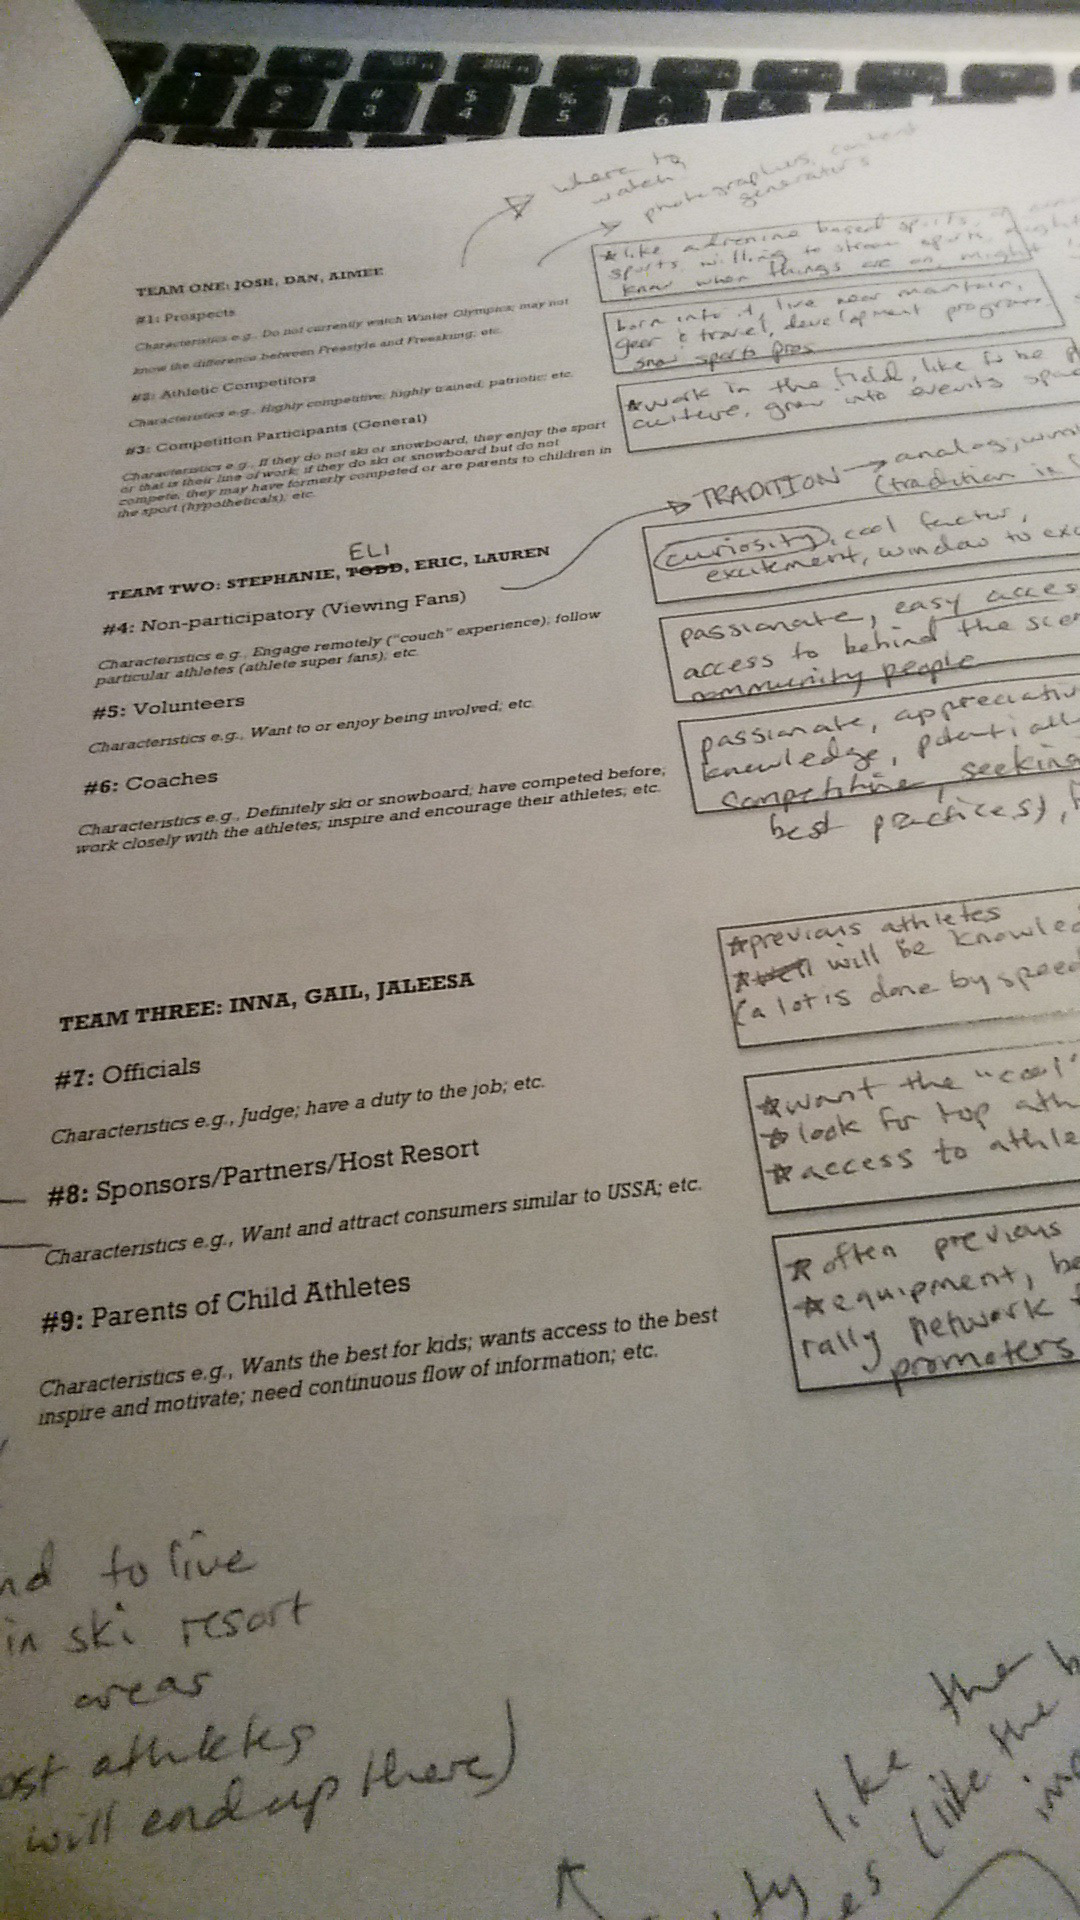 ! 1
@ 2
# 3
$ 4
% 5
^ 6
&
where to
watch
photographers, content
generators
TEAM ONE: JOSH, DAN, AIMEE
#1: Prospects
Characteristics e.g., Do not currently watch Winter Olympics; may not
know the difference between Freestyle and Freeskiing; etc.
#2: Athletic Competitors
Characteristics e.g., Highly competitive; highly trained; patriotic; etc.
#3: Competition Participants (General)
Characteristics e.g., If they do not ski or snowboard, they enjoy the sport
or that is their line of work; if they do ski or snowboard but do not
compete, they may have formerly competed or are parents to children in
the sport (hypotheticals); etc.
*like adrenine based sports,
sports, willing to stream sports,
know when things are on, might
born into it, live near mountain,
gear & travel, development programs
snow sports pros
*work in the field, like to be
culture, grew into events
TRADITION → analog,
(tradition in
ELI
TEAM TWO: STEPHANIE, TODD, ERIC, LAUREN
#4: Non-participatory (Viewing Fans)
Characteristics e.g., Engage remotely ("couch" experience); follow
particular athletes (athlete super fans); etc.
#5: Volunteers
Characteristics e.g., Want to or enjoy being involved; etc.
#6: Coaches
Characteristics e.g., Definitely ski or snowboard; have competed before;
work closely with the athletes; inspire and encourage their athletes; etc.
curiosity, cool factor,
excitement, window to
passionate, easy
access to behind the
community people
passionate,
knowledge,
competitive, seeking
best practices),
TEAM THREE: INNA, GAIL, JALEESA
#7: Officials
Characteristics e.g., Judge; have a duty to the job; etc.
#8: Sponsors/Partners/Host Resort
Characteristics e.g., Want and attract consumers similar to USSA; etc.
#9: Parents of Child Athletes
Characteristics e.g., Wants the best for kids; wants access to the best
inspire and motivate; need continuous flow of information; etc.
*previous athletes
*well will be
(a lot is done by speed
*want the "cool"
*look for top
*access to
*often previous
*equipment,
rally network
promoters
to live
in ski resort
areas
athletes
will end up there)
the
like
(like the